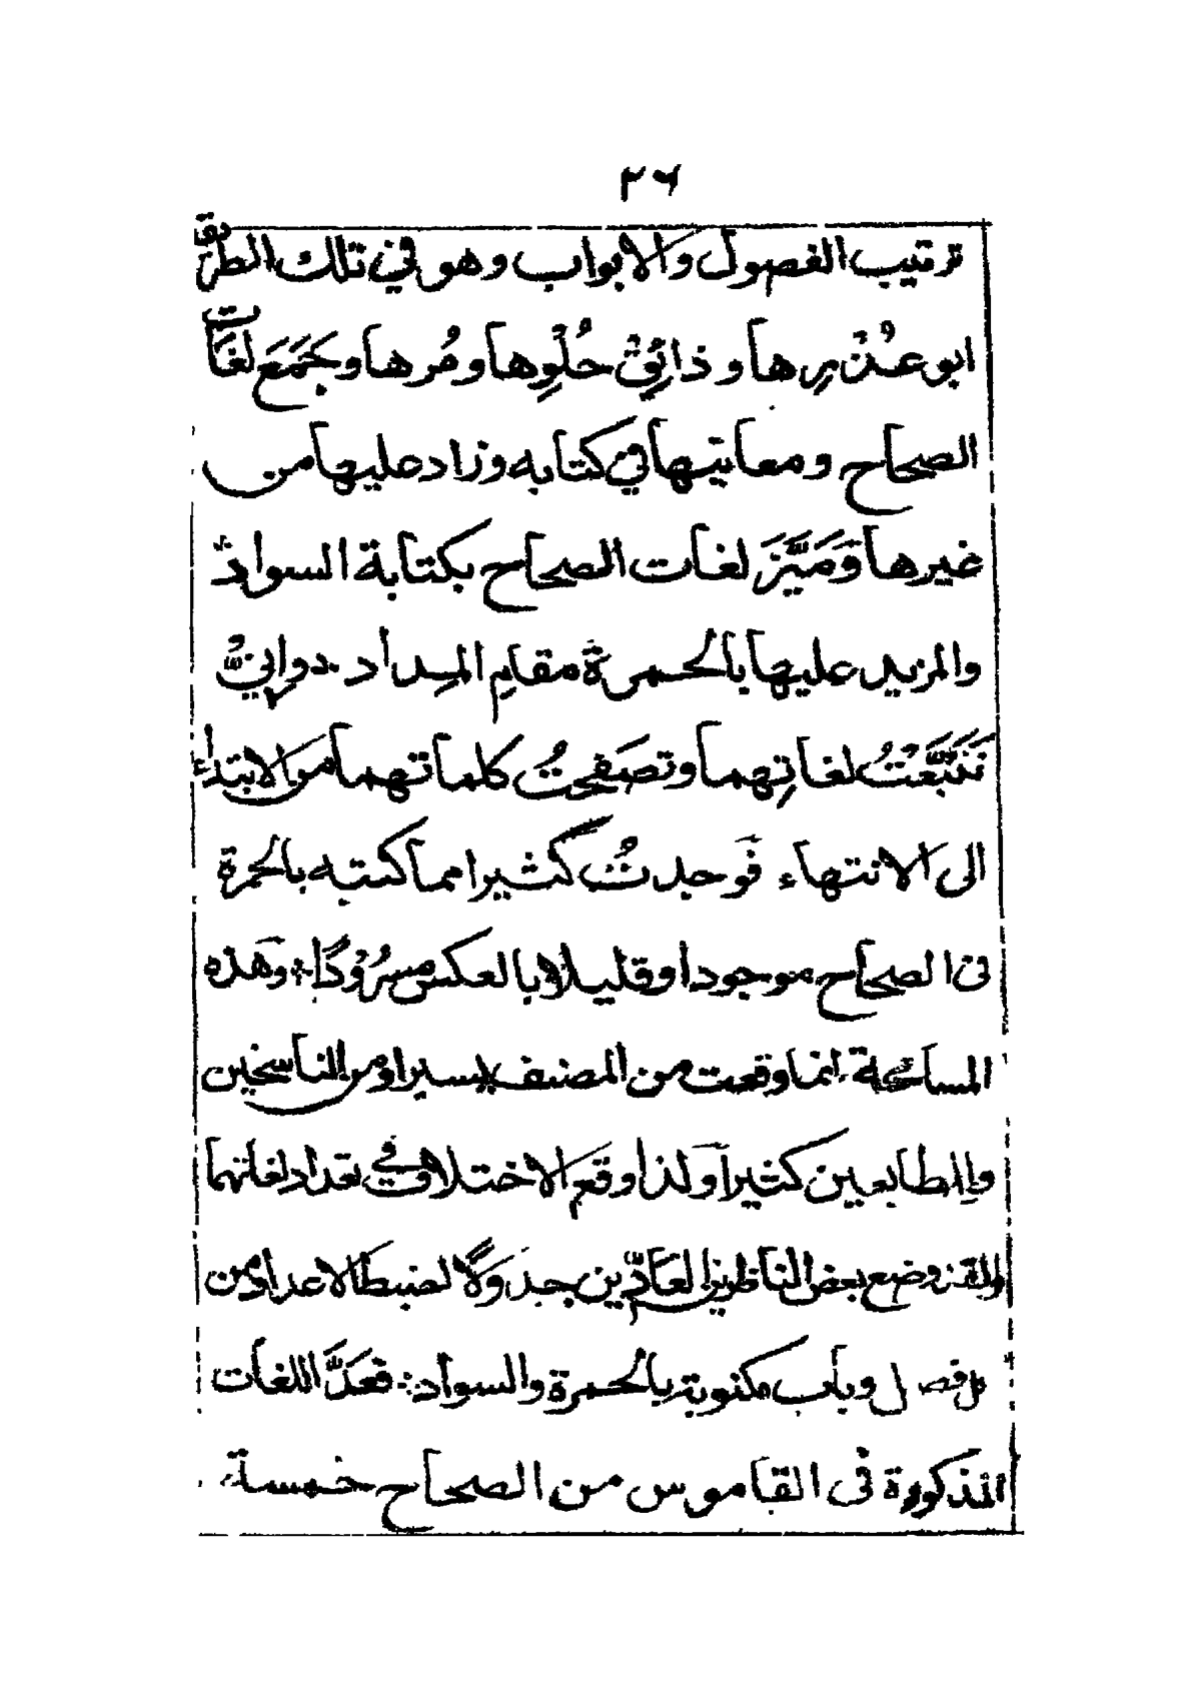 ٢٦
ترتيب الفصول والابواب وهو في تلك الطريق
ابو عُذْرِها وذائِقُ حُلْوِها ومُرها وجَمَعَ لغَات
الصحاح ومعانيها في كتابه وزاد عليها من
غيرها وَمَيَّزَ لغات الصحاح بكتابة السواد
والمزيد عليها بالحمرة مقام المِداد
تَتَبَّعْتُ لغاتِهما وتصَفحتُ كلماتهما من الابتداء
الى الانتهاء فَوجدتُ كثيرا مما كتبه بالحمرة
فى الصحاح موجودا وقليلا بالعكس مسرُوْدًا وهَذه
المسامحة انما وقعت من المصنف يسيرا ومن الناسخين
والطابعين كثيراً وَلذا وقع الاختلاف في تعداد لغاتهما
وضع بعض الناظرين العَادِّين جدوَلًا لضبط الاعداد من
كل فصل وباب مكتوبة بالحمرة والسواد فعَدَّ اللغات
المذكورة فى القاموس من الصحاح خمسة